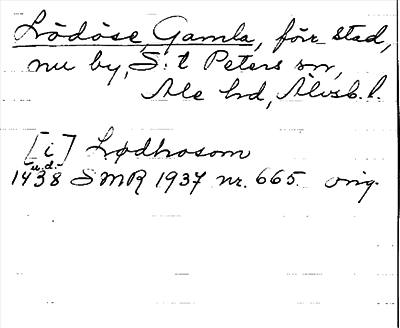 Lödöse, Gamla, förr stad,
nu by, S:t Peters sn,
Ale hd, Älvsb. l.
[i] Lødhosom
u.d.
1438 SMR 1937 nr. 665. orig.